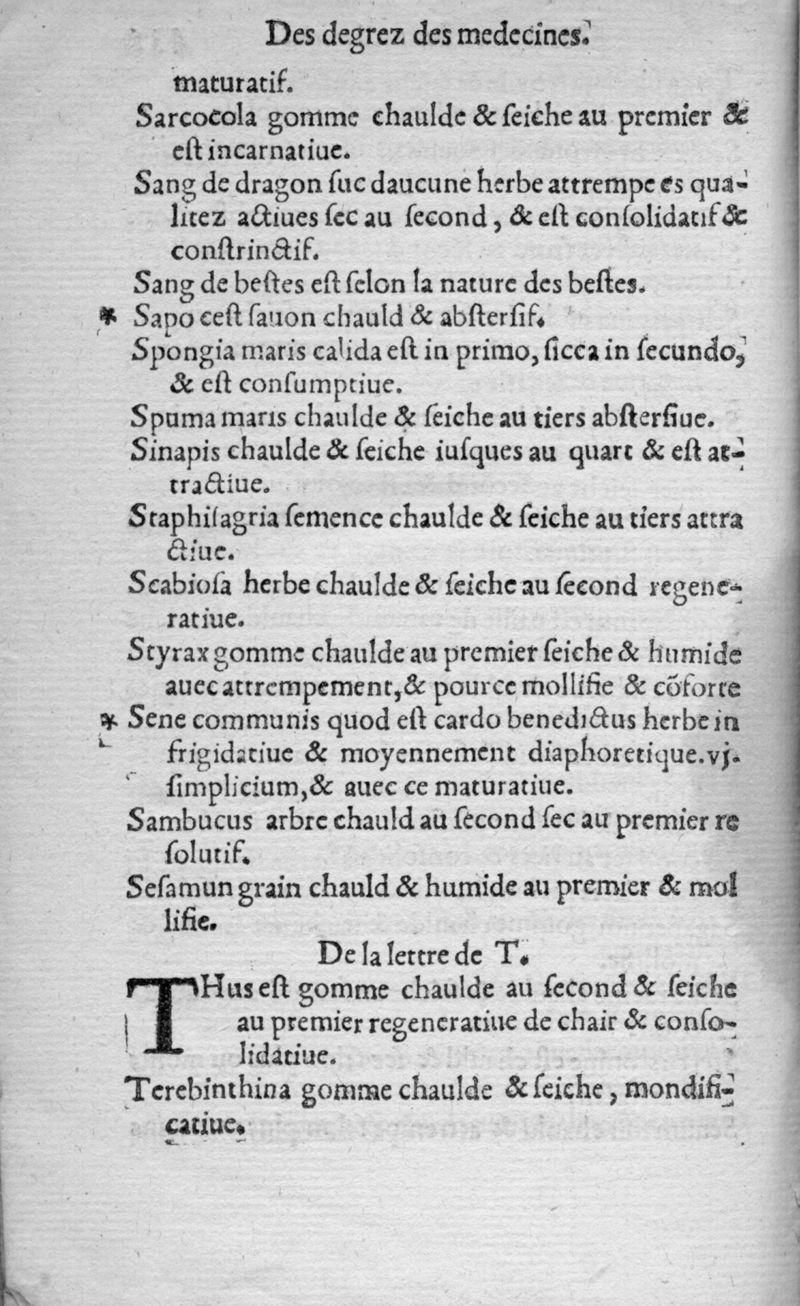 Des degrez des medecines.
maturatif.
Sarcocola gomme chaulde & ſeiche au premier &
eſt incarnatiue.
Sang de dragon ſuc daucune herbe attrempe es qua-
litez actiues ſec au ſecond, & eſt conſolidatif &
conſtrinctif.
Sang de beſtes eſt ſelon la nature des beſtes.
* Sapo ceſt ſauon chauld & abſterſif.
Spongia maris calida eſt in primo, ſicca in ſecundo,
& eſt conſumptiue.
Spuma maris chaulde & ſeiche au tiers abſterſiue.
Sinapis chaulde & ſeiche iuſques au quart & eſt at-
tractiue.
Staphiſagria ſemence chaulde & ſeiche au tiers attra
ctiue.
Scabioſa herbe chaulde & ſeiche au ſecond regene-
ratiue.
Styrax gomme chaulde au premier ſeiche & humide
auec attrempement, & pource mollifie & cõforte
* Sene communis quod eſt cardo benedictus herbe in
frigidatiue & moyennement diaphoretique. vj.
ſimplicium, & auec ce maturatiue.
Sambucus arbre chauld au ſecond ſec au premier re
ſolutif.
Seſamun grain chauld & humide au premier & mol
lifie.
De la lettre de T.
THus eſt gomme chaulde au ſecond & ſeiche
au premier regeneratiue de chair & conſo-
lidatiue.
Terebinthina gomme chaulde & ſeiche, mondifi-
catiue.